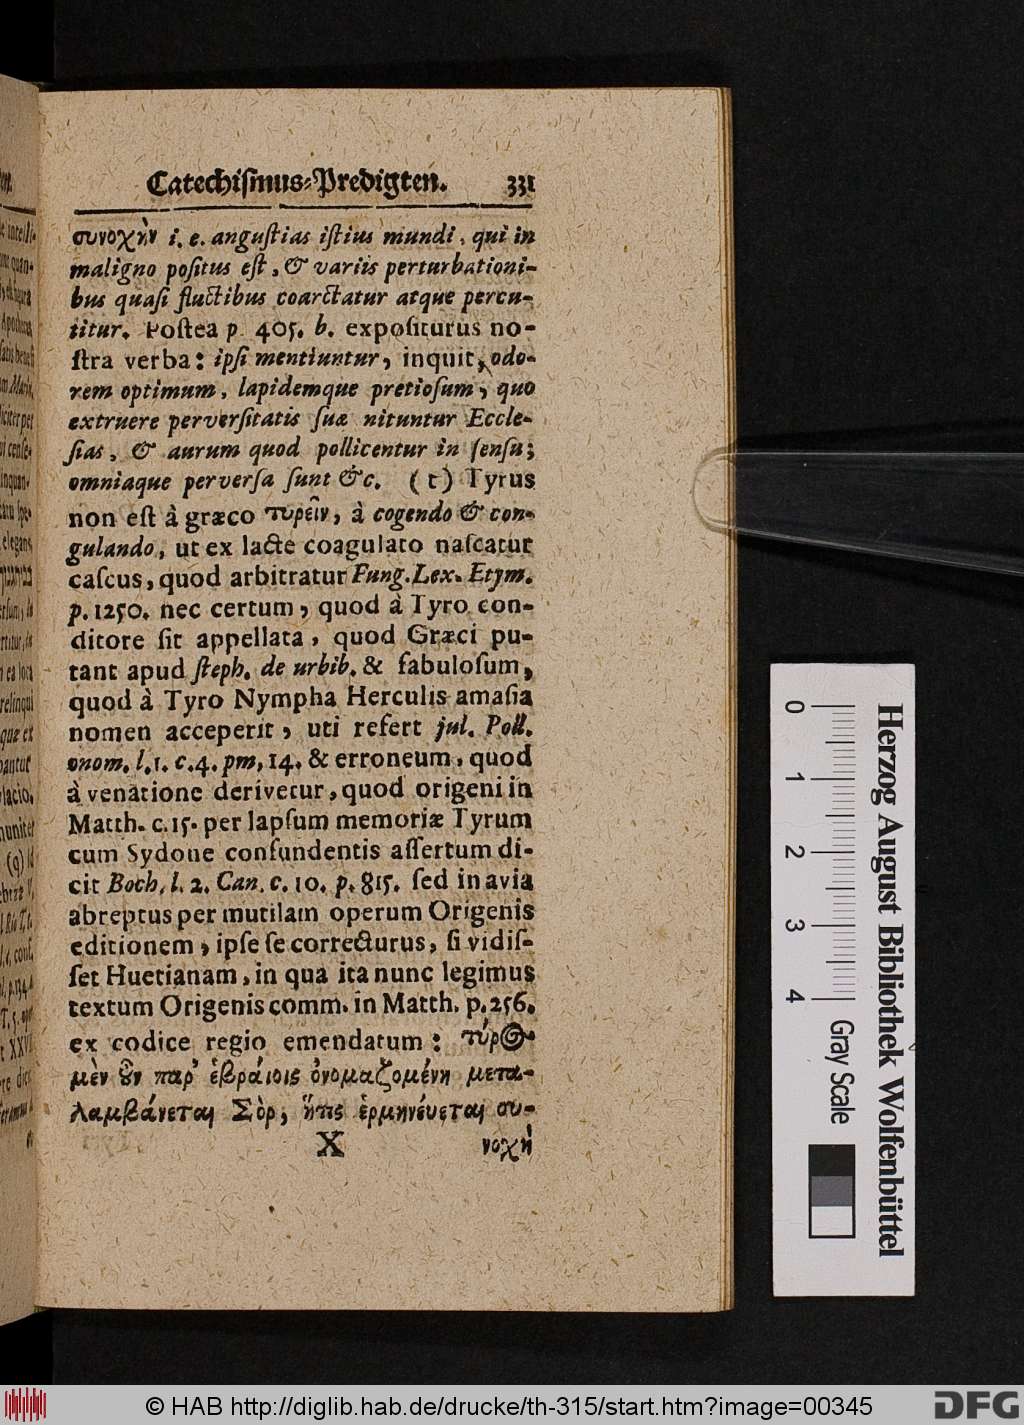 Catechiſmus-Predigten. 331
συνοχὴν i. e. anguſtias iſtius mundi, qui in
maligno poſitus eſt, & variis perturbationi-
bus quaſi fluctibus coarctatur atque percu-
titur. Poſtea p. 405. b. expoſiturus no-
ſtra verba: ipſi mentiuntur, inquit, odo-
rem optimum, lapidemque pretioſum, quo
extruere perverſitatis ſuæ nituntur Eccle-
ſias, & aurum quod pollicentur in ſenſu;
omniaque perverſa ſunt &c. (t) Tyrus
non eſt à græco τυρεῖν, à cogendo & con-
gulando, ut ex lacte coagulato naſcatur
caſeus, quod arbitratur Fung. Lex. Etym.
p. 1250. nec certum, quod à Tyro con-
ditore ſit appellata, quod Græci pu-
tant apud ſteph. de urbib. & fabuloſum,
quod à Tyro Nympha Herculis amaſia
nomen acceperit, uti refert jul. Poll.
onom. l. 1. c. 4. pm, 14. & erroneum, quod
à venatione derivetur, quod origeni in
Matth. c. 15. per lapſum memoriæ Tyrum
cum Sydone confundentis aſſertum di-
cit Boch. l. 2. Can. c. 10. p. 815. ſed in avia
abreptus per mutilam operum Origenis
editionem, ipſe ſe correcturus, ſi vidiſ-
ſet Huetianam, in qua ita nunc legimus
textum Origenis comm. in Matth. p. 256.
ex codice regio emendatum: τύρος
μὲν ȣ̓ν παρ' ἑβράιοις ὀνομαζομένη μετα-
λαμβάνεται Σὸρ, ἥτις ἑρμηνέυεται συ-
X νοχὴ
Herzog August Bibliothek Wolfenbüttel
0 1 2 3 4
Gray Scale
© HAB http://diglib.hab.de/drucke/th-315/start.htm?image=00345
DFG